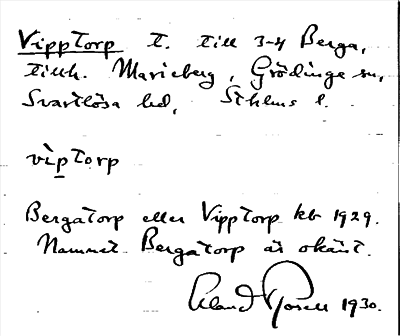 Vipptorp t. till 3-4 Berga,
tillh. Marieberg, Grödinge sn,
Svartlösa hd, Sthlms l.
vìptorp
Bergatorp eller Vipptorp kb 1929.
Namnet Bergatorp är okänt.
Erland Rosell 1930.